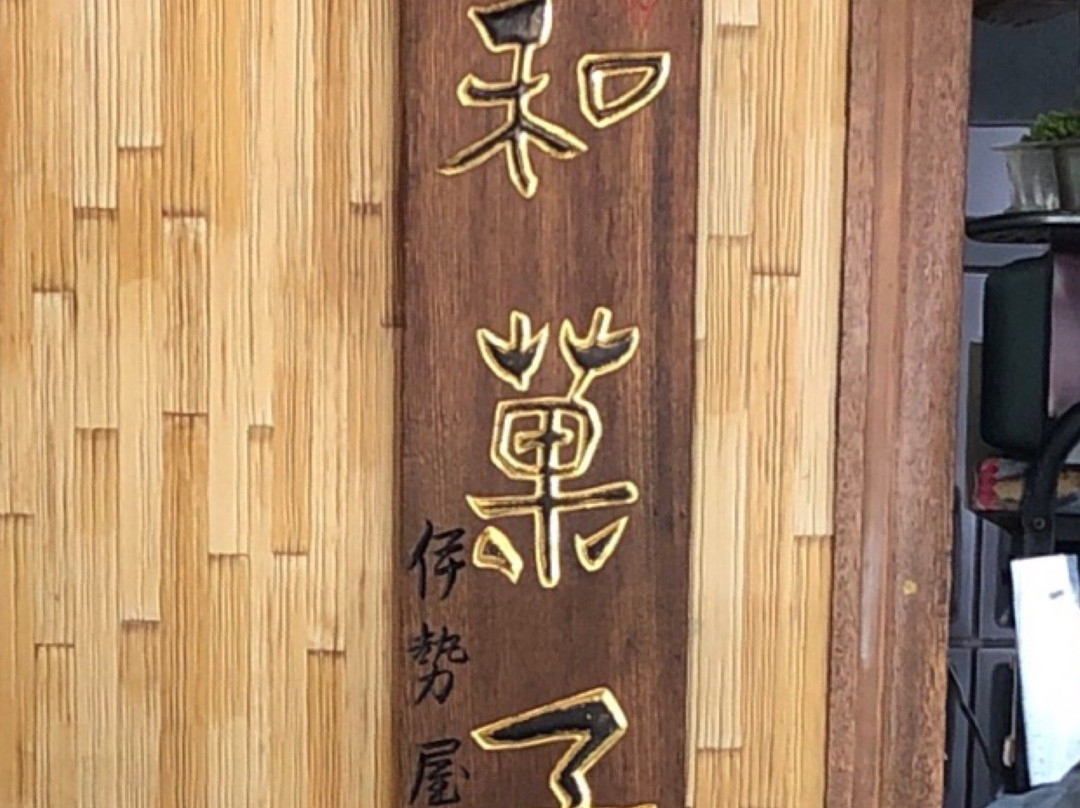 和菓子
伊勢屋